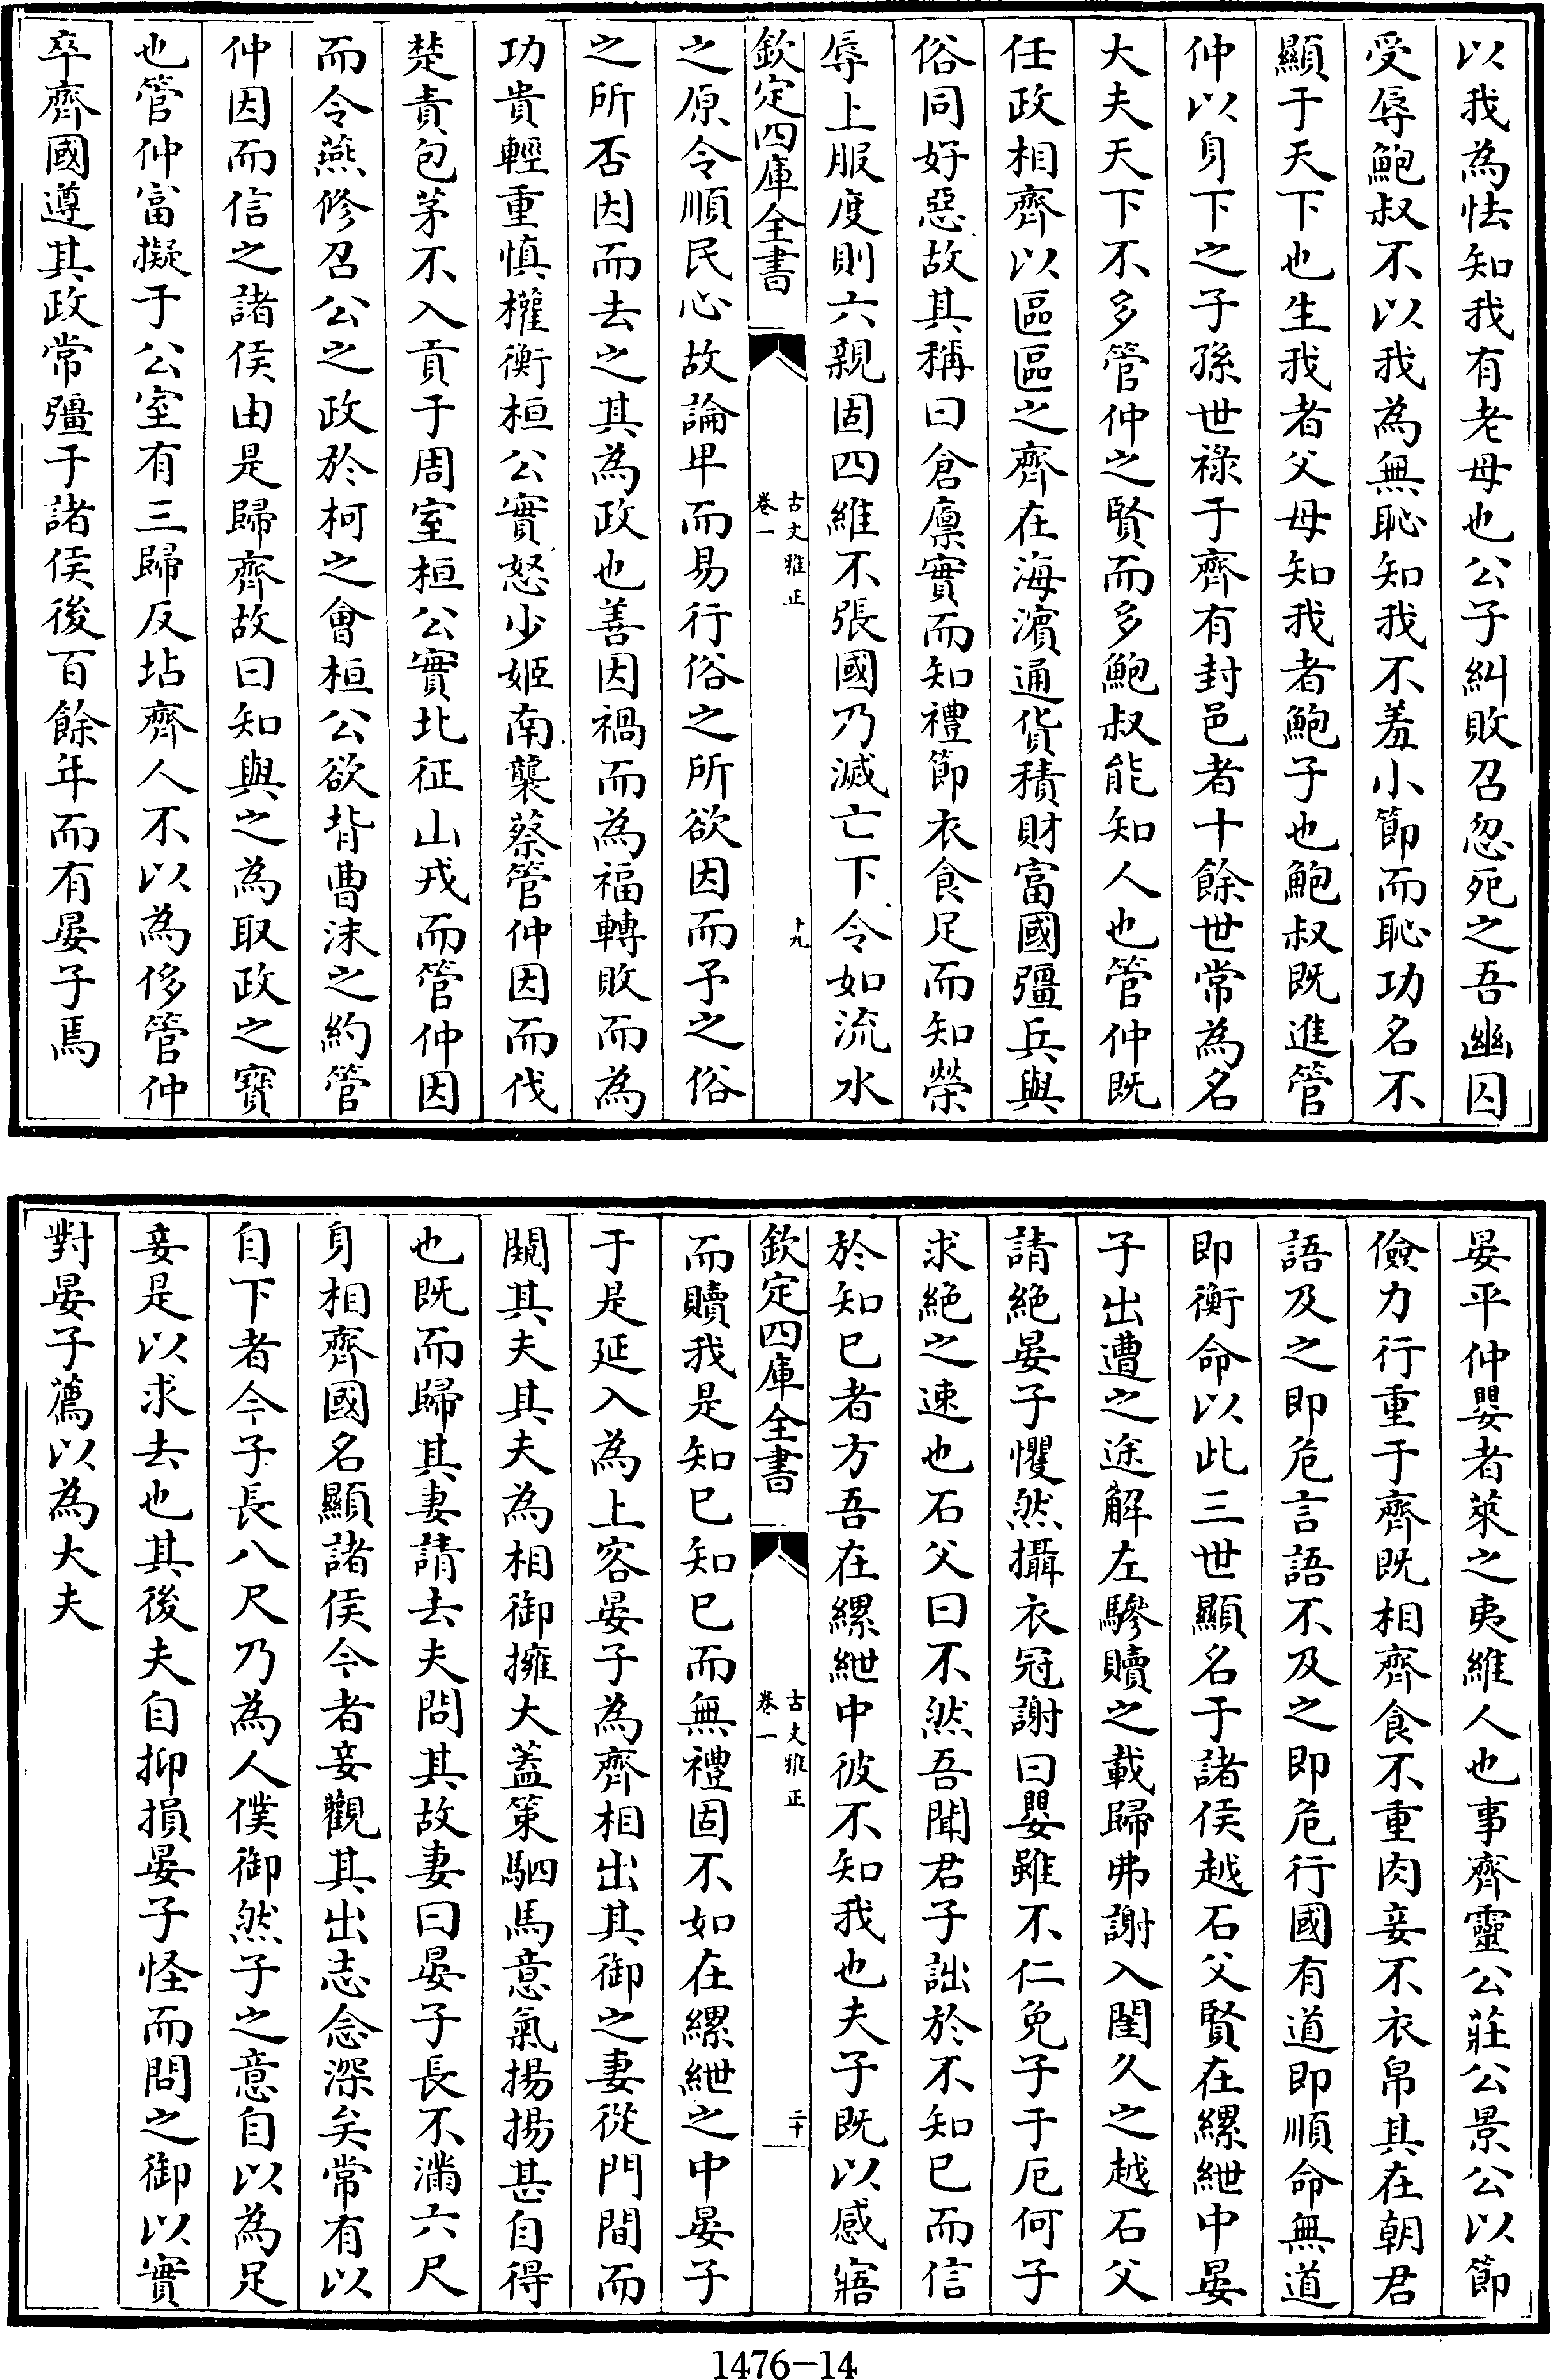 以我為怯知我有老母也公子糾敗召忽死之吾幽囚
受辱鮑叔不以我為無恥知我不羞小節而恥功名不
顯于天下也生我者父母知我者鮑子也鮑叔既進管
仲以身下之子孫世祿于齊有封邑者十餘世常為名
大夫天下不多管仲之賢而多鮑叔能知人也管仲既
任政相齊以區區之齊在海濱通貨積財富國彊兵與
俗同好惡故其稱曰倉廩實而知禮節衣食足而知榮
辱上服度則六親固四維不張國乃滅亡下令如流水
欽定四庫全書
古文雅正
卷一
十九
之原令順民心故論卑而易行俗之所欲因而予之俗
之所否因而去之其為政也善因禍而為福轉敗而為
功貴輕重慎權衡桓公實怒少姬南襲蔡管仲因而伐
楚責包茅不入貢于周室桓公實北征山戎而管仲因
而令燕修召公之政於柯之會桓公欲背曹沬之約管
仲因而信之諸侯由是歸齊故曰知與之為取政之寶
也管仲富擬于公室有三歸反坫齊人不以為侈管仲
卒齊國遵其政常彊于諸侯後百餘年而有晏子焉
晏平仲嬰者萊之夷維人也事齊靈公莊公景公以節
儉力行重于齊既相齊食不重肉妾不衣帛其在朝君
語及之即危言語不及之即危行國有道即順命無道
即衡命以此三世顯名于諸侯越石父賢在縲紲中晏
子出遭之途解左驂贖之載歸弗謝入閨久之越石父
請絶晏子懼然攝衣冠謝曰嬰雖不仁免子于厄何子
求絶之速也石父曰不然吾聞君子詘於不知己而信
於知已者方吾在縲紲中彼不知我也夫子既以感寤
欽定四庫全書
古文雅正
卷一
二十
而贖我是知已知已而無禮固不如在縲紲之中晏子
于是延入為上客晏子為齊相出其御之妻從門間而
闚其夫其夫為相御擁大蓋策駟馬意氣揚揚甚自得
也既而歸其妻請去夫問其故妻曰晏子長不滿六尺
身相齊國名顯諸侯今者妾觀其出志念深矣常有以
自下者今子長八尺乃為人僕御然子之意自以為足
妾是以求去也其後夫自抑損晏子怪而問之御以實
對晏子薦以為大夫
1476-14